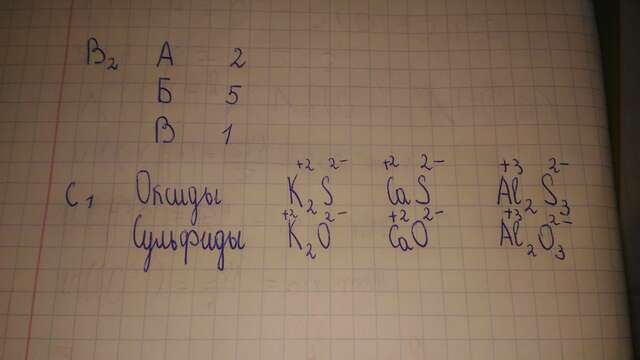 В₂ А 2
Б 5
В 1
С₁ Оксиды K₂⁺²S²⁻ Ca⁺²S²⁻ Al₂⁺³S₃²⁻
Сульфиды K₂⁺²O²⁻ Ca⁺²O²⁻ Al₂⁺³O₃²⁻